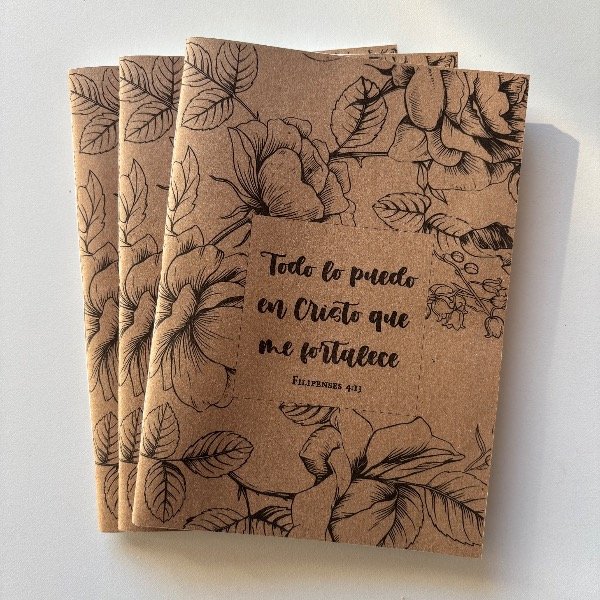 Todo lo puedo
en Cristo que
me fortalece
Filipenses 4:13